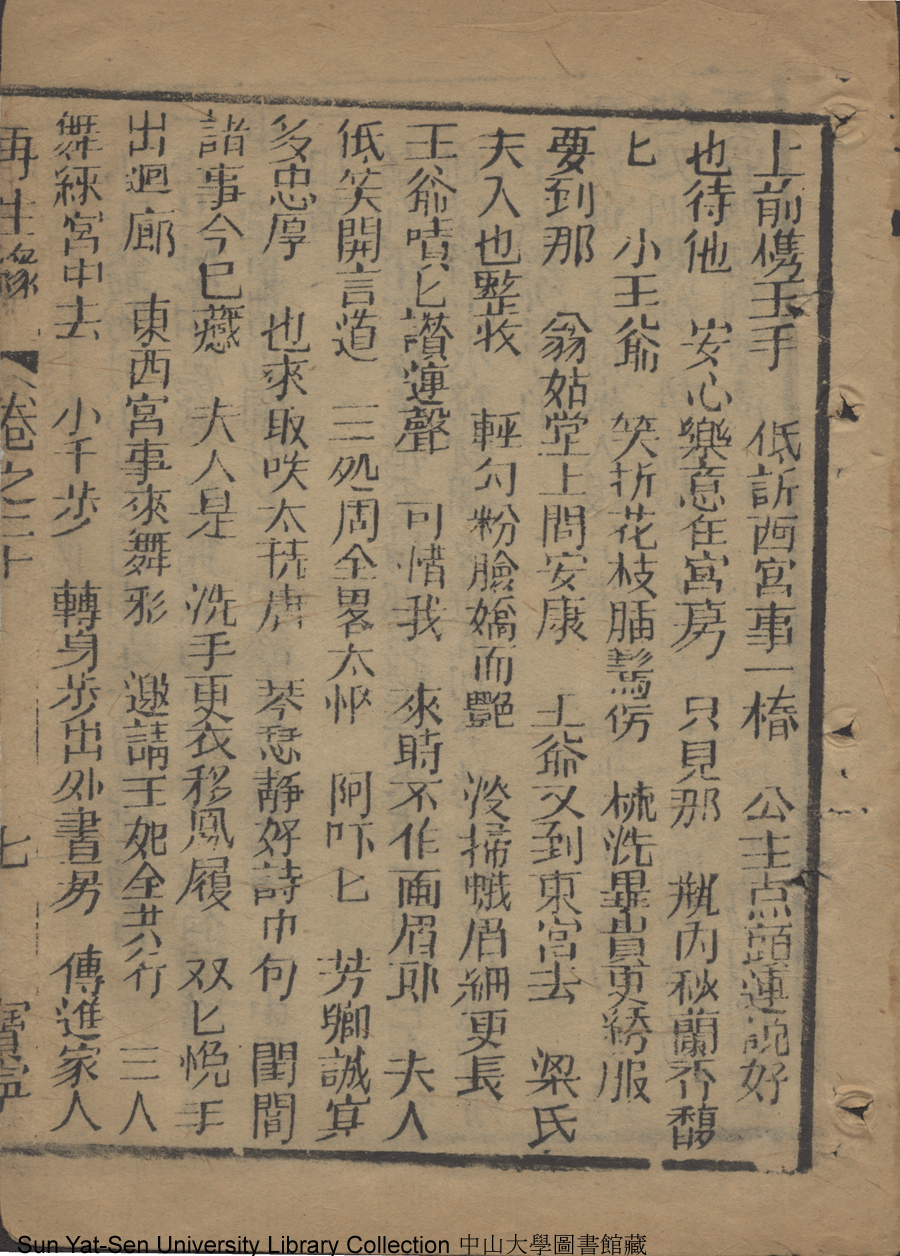 上前儁玉手　低訢西宮事一樁　公主点頭連說好
也待他　安心樂意在宮房　只見那　瓶內秋蘭香馥
匕　小王爺　笑折花枝插鬂傍　梳洗畢貴更綉服
要到那　翁姑堂上問安康　王爺又到東宮去　梁氏
夫入也整妝　輕勻粉臉嬌而艷　淡掃蛾眉細更長
王爺嘖匕讚連聲　可惜我　來時不作畫眉郎　夫人
低笑開言道　三処周全畧太忙　阿吓匕　芳卿誠真
多忠厚　也來取咲太荒唐　琴瑟靜好詩巾句　閨間
諸事今已藏　夫人是　洗手更衣移鳳履　双匕悅手
出迴廊　東西宮事來舞彩　邀請王妃全共行　三人
舞綵宮中去　小千步　轉身步出外書房　傳進家人
再生緣　卷之三十　七　寶寧
Sun Yat-Sen University Library Collection 中山大學圖書館藏